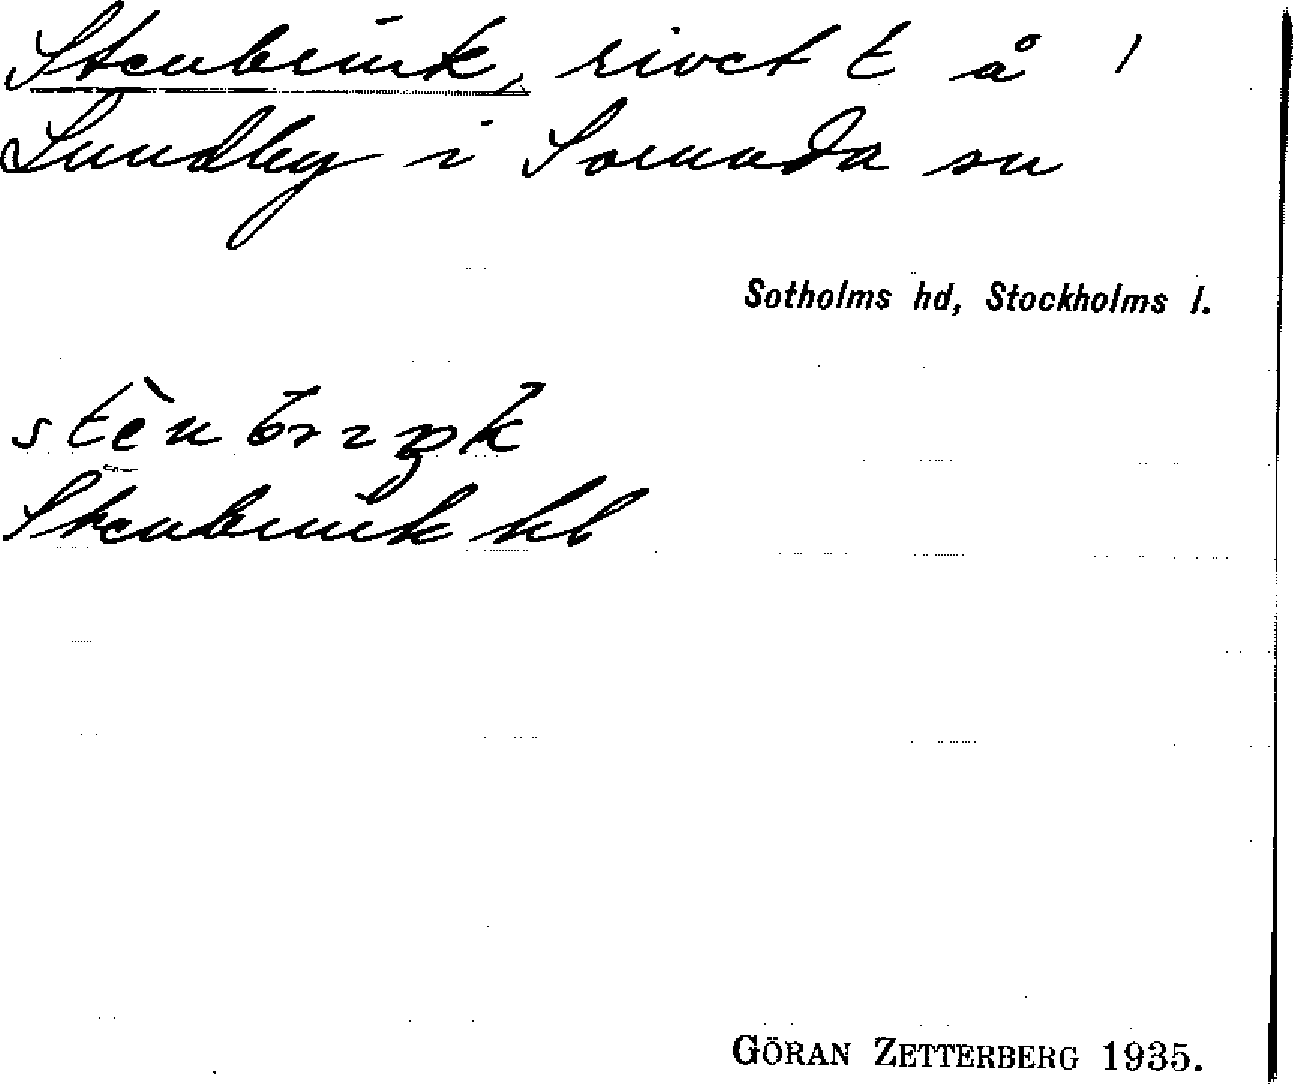 Stenbrink, rivet t å 1
Lundby i Sorunda sn
Sotholms hd, Stockholms l.
Stenbrink hl
GÖRAN ZETTERBERG 1935.